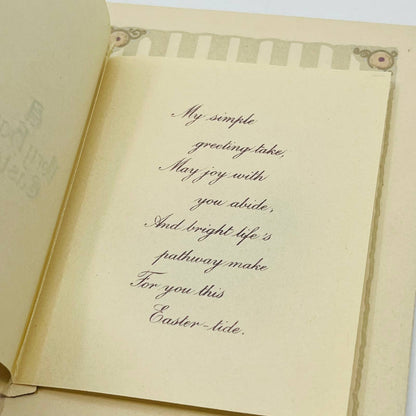 My simple
greeting take,
May joy with
you abide,
And bright life's
pathway make
For you this
Easter-tide.